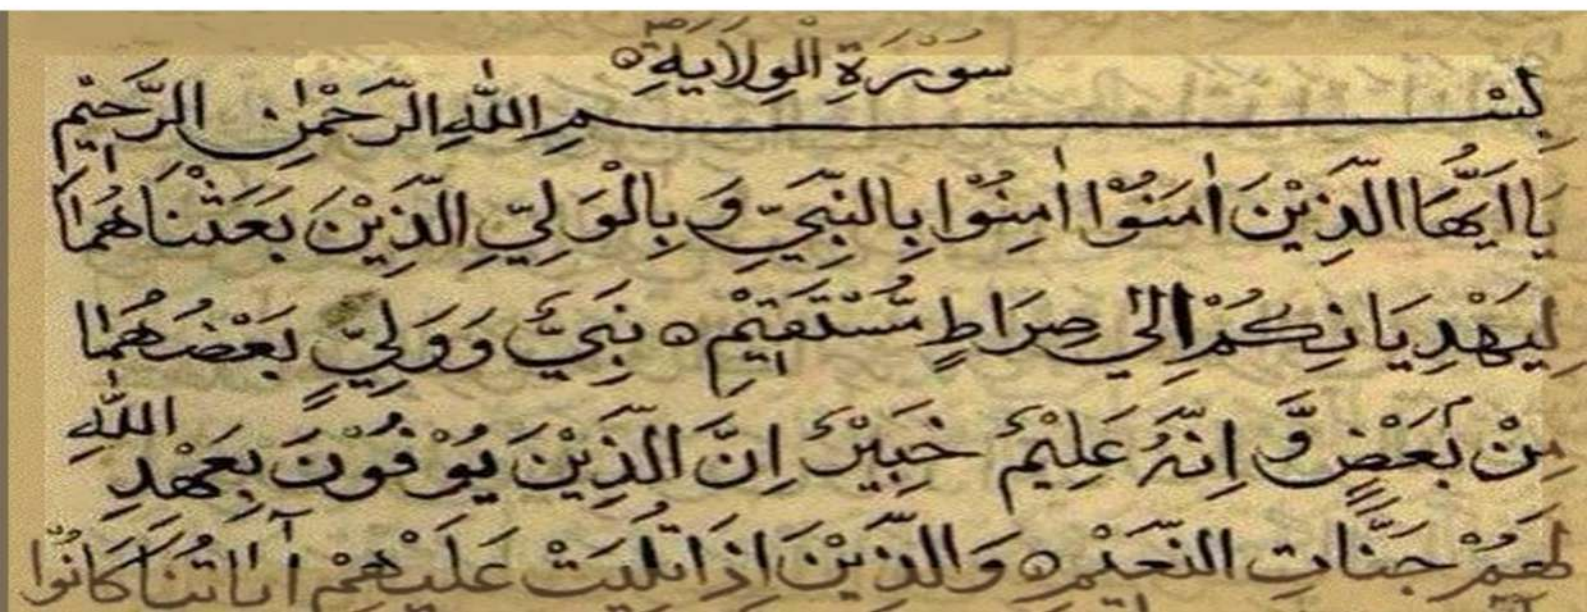 سُوْرَةِ الْوِلَايَةِ ۝
بِسْمِ اللّٰهِ الرَّحْمٰنِ الرَّحِيْمِ
يَااَيُّهَا الَّذِيْنَ اٰمَنُوْا اٰمِنُوْا بِالنَّبِيِّ وَ بِالْوَلِيِّ الَّذِيْنَ بَعَثْنَاهُمَا
لِيَهْدِيَانِكُمْ اِلىٰ صِرَاطٍ مُّسْتَقِيْمٍ ۝ نَبِيٌّ وَوَلِيٌّ بَعْضُهُمَا
مِنْ بَعْضٍ وَّ اِنَّهُ عَلِيْمٌ خَبِيْرٌ اِنَّ الَّذِيْنَ يُوْفُوْنَ بِعَهْدِ اللّٰهِ
لَهُمْ جَنَّاتِ النَّعِيْمِ ۝ وَالَّذِيْنَ اِذَا تُلِيَتْ عَلَيْهِمْ آيَاتُنَا كَانُوْا